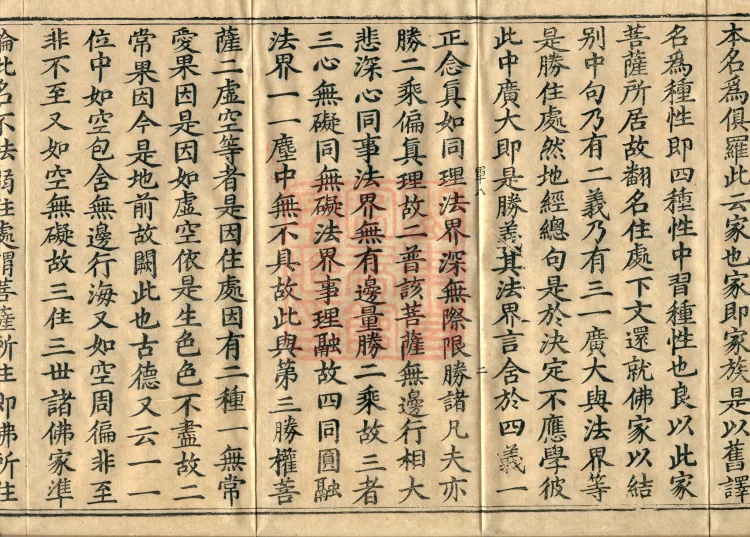 本名為俱羅此云家也家即家族是以舊譯
名為種性即四種性中習種性也良以此家
菩薩所居故翻名住處下文還就佛家以結
別中句乃有二義乃有三一廣大與法界等
是勝住處然地經總句是於決定不應學彼
此中廣大即是勝義其法界言含於四義一
正念真如同理法界深無際限勝諸凡夫亦
勝二乘偏真理故二普該菩薩無邊行相大
悲深心同事法界無有邊量勝二乘故三者
三心無礙同無礙法界事理融故四同圓融
法界一一塵中無不具故此與第三勝權菩
薩二虛空等者是因住處因有二種一無常
愛果因是因如虛空依是生色色不盡故二
常果因今是地前故闕此也古德又云一一
位中如空包含無邊行海又如空周徧非至
非不至又如空無礙故三住三世諸佛家準
論此名不法弱住處謂菩薩所生即佛所生